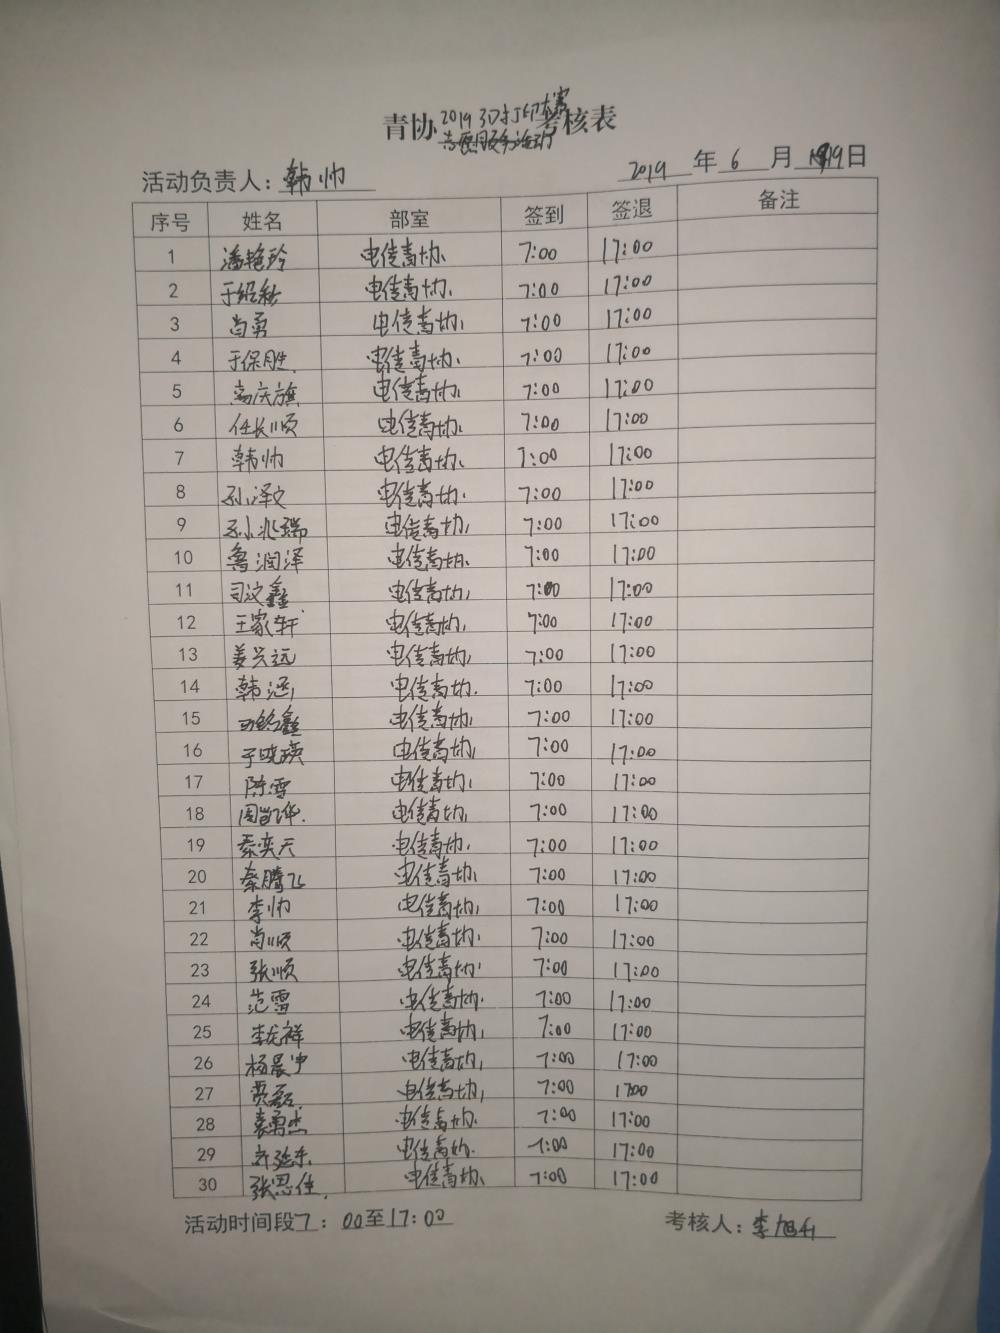 青协2019 3D打印大赛考核表
志愿服务活动
活动负责人：韩帅 2019年6月19日
序号 姓名 部室 签到 签退 备注
1 潘艳玲 电信青协 7:00 17:00
2 于绍秋 电信青协 7:00 17:00
3 尚勇 电信青协 7:00 17:00
4 于保胜 电信青协 7:00 17:00
5 高庆旗 电信青协 7:00 17:00
6 任长顺 电信青协 7:00 17:00
7 韩帅 电信青协 7:00 17:00
8 孙泽文 电信青协 7:00 17:00
9 孙兆瑞 电信青协 7:00 17:00
10 鲁润泽 电信青协 7:00 17:00
11 司汶鑫 电信青协 7:00 17:00
12 王家轩 电信青协 7:00 17:00
13 姜兴远 电信青协 7:00 17:00
14 韩涵 电信青协 7:00 17:00
15 电信青协 7:00 17:00
16 于晓瑛 电信青协 7:00 17:00
17 陈雪 电信青协 7:00 17:00
18 周凯华 电信青协 7:00 17:00
19 秦奕天 电信青协 7:00 17:00
20 秦腾飞 电信青协 7:00 17:00
21 李帅 电信青协 7:00 17:00
22 尚顺 电信青协 7:00 17:00
23 张顺 电信青协 7:00 17:00
24 范雷 电信青协 7:00 17:00
25 李龙祥 电信青协 7:00 17:00
26 杨晨宇 电信青协 7:00 17:00
27 贾磊 电信青协 7:00 1700
28 袁勇杰 电信青协 7:00 17:00
29 电信青协 7:00 17:00
30 张思佳 电信青协 7:00 17:00
活动时间段7：00至17:00 考核人：李旭升